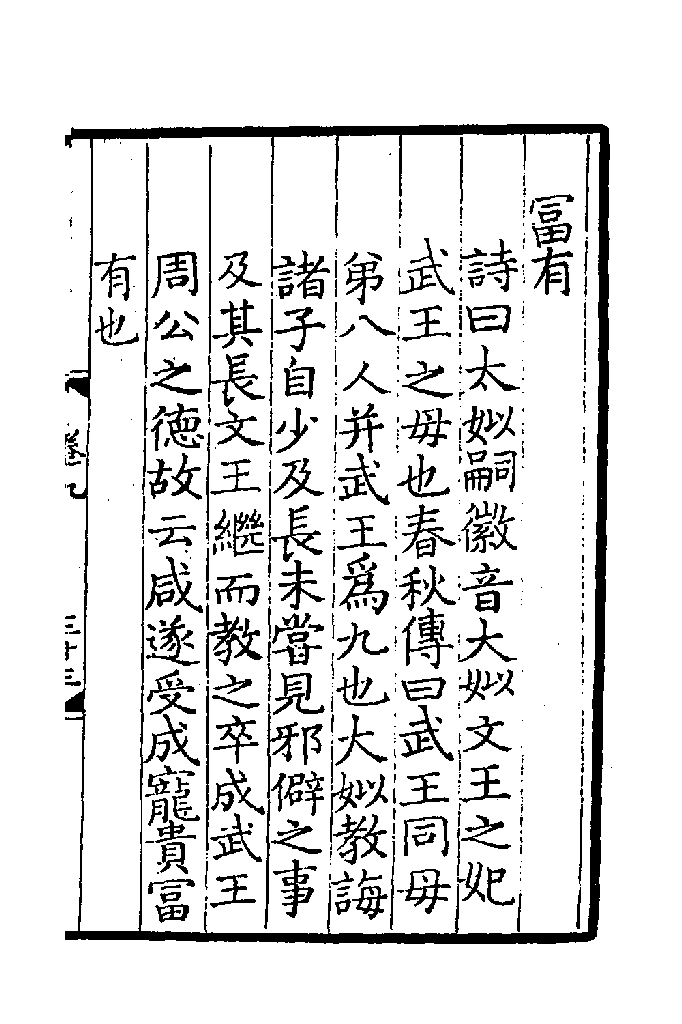 冨有
詩曰太姒嗣徽音大姒文王之妃
武王之母也春秋傳曰武王同母
弟八人并武王爲九也大姒教誨
諸子自少及長未甞見邪僻之事
及其長文王繼而教之卒成武王
周公之德故云咸遂受成寵貴冨
有也
卷九
三十三